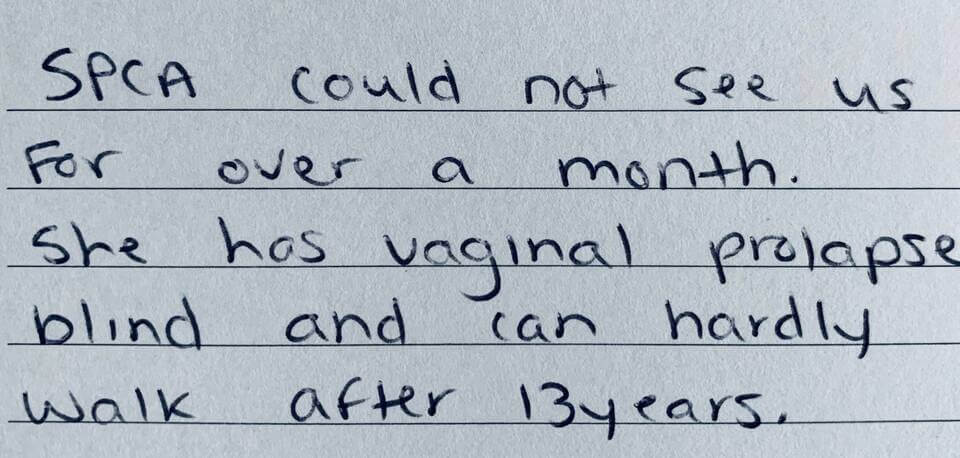 SPCA could not see us
For over a month.
She has vaginal prolapse
blind and can hardly
walk after 13years.